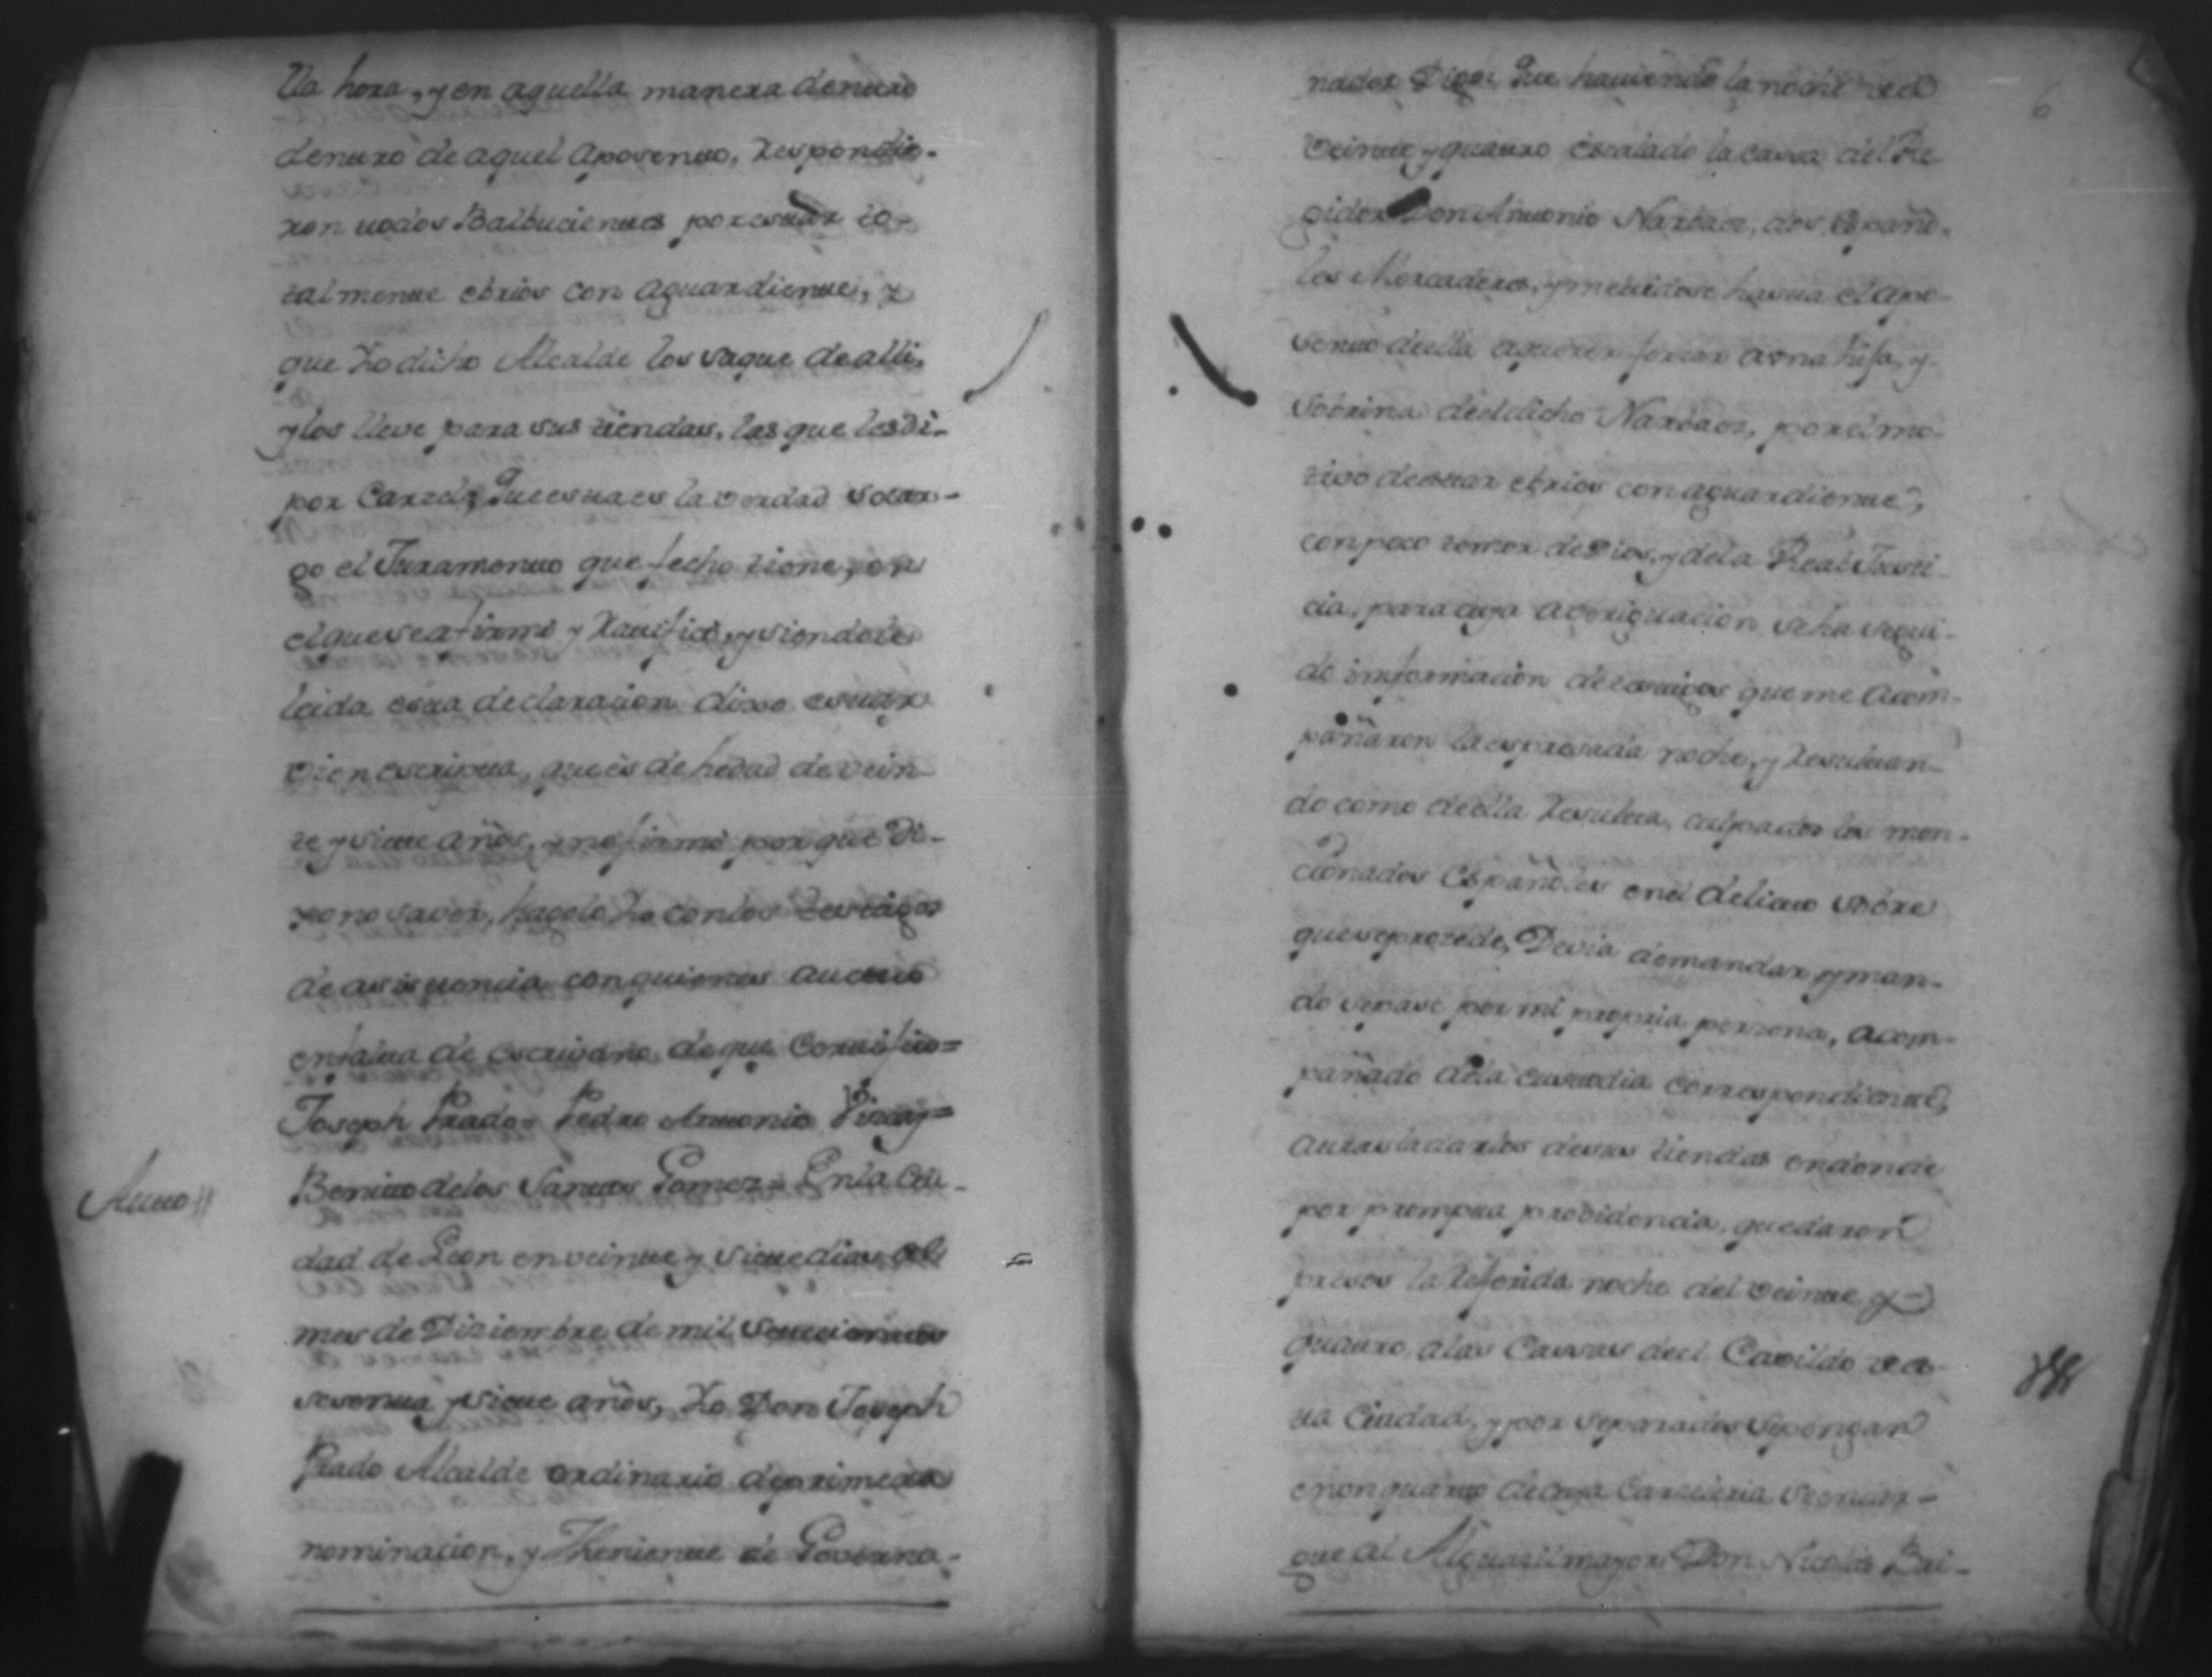 lla hora, y en aquella manera dentro
dentro de aquel aposento, respondie-
ron todos Balbucientes por estar to-
talmente ebrios con aguardiente, y
que Yo dicho Alcalde los saque de alli,
y los lleve para sus tiendas, las que les di
por Carzel, Que esta es la verdad so car-
go el Juramento que fecho tiene, en
el que se afirmó y ratificó, y siendole
leida esta declaracion dixo estar
bien escripta, que es de hedad de vein-
te y siete años, y no firmó por que di-
xo no saver, hagolo Yo con los testigos
de asistencia con quienes actuo
en falta de escrivano de que Certifico=
Joseph Prado= Pedro Antonio
Benito de los Santos Gomez= En la Ciu-
Auto //
dad de Leon en veinte y siete dias del
mes de Diziembre de mil setecientos
sesenta y siete años, Yo Don Joseph
Prado Alcalde ordinario de primera
nominacion, y Theniente de Governa-
6
nador Digo: Que haviendo la noche del
veinte y quatro escalado la cassa del Re
gidor Don Antonio Narbaez, dos españo-
les Mercaderes, y metidose hasta el apo-
sento de ella a querer forzar a una hija, y
sobrina del dicho Narbaez, por el mo-
tivo de estar ebrios con aguardiente,
con poco temor de Dios, y de la Real Justi-
cia, para cuya averiguacion se ha segui-
do imformacion de testigos que me acom-
pañaron la expresada noche, y resultan-
do como de ella resulta, culpados los men-
cionados Españoles en el delicto sobre
que se procede, Devia de mandar y man-
do se pase por mi propria persona, acom-
pañado de la custodia correspondiente,
a trasladarlos de sus tiendas en donde
por prompta probidencia, quedaron
presos la referida noche del veinte y
quatro, a las Cassas del Cavildo de es-
ta Ciudad, y por separados se pongan
en un quarto de cuya Carzeleria se encar-
gue al Alguazil mayor Don Nicolas Bri-